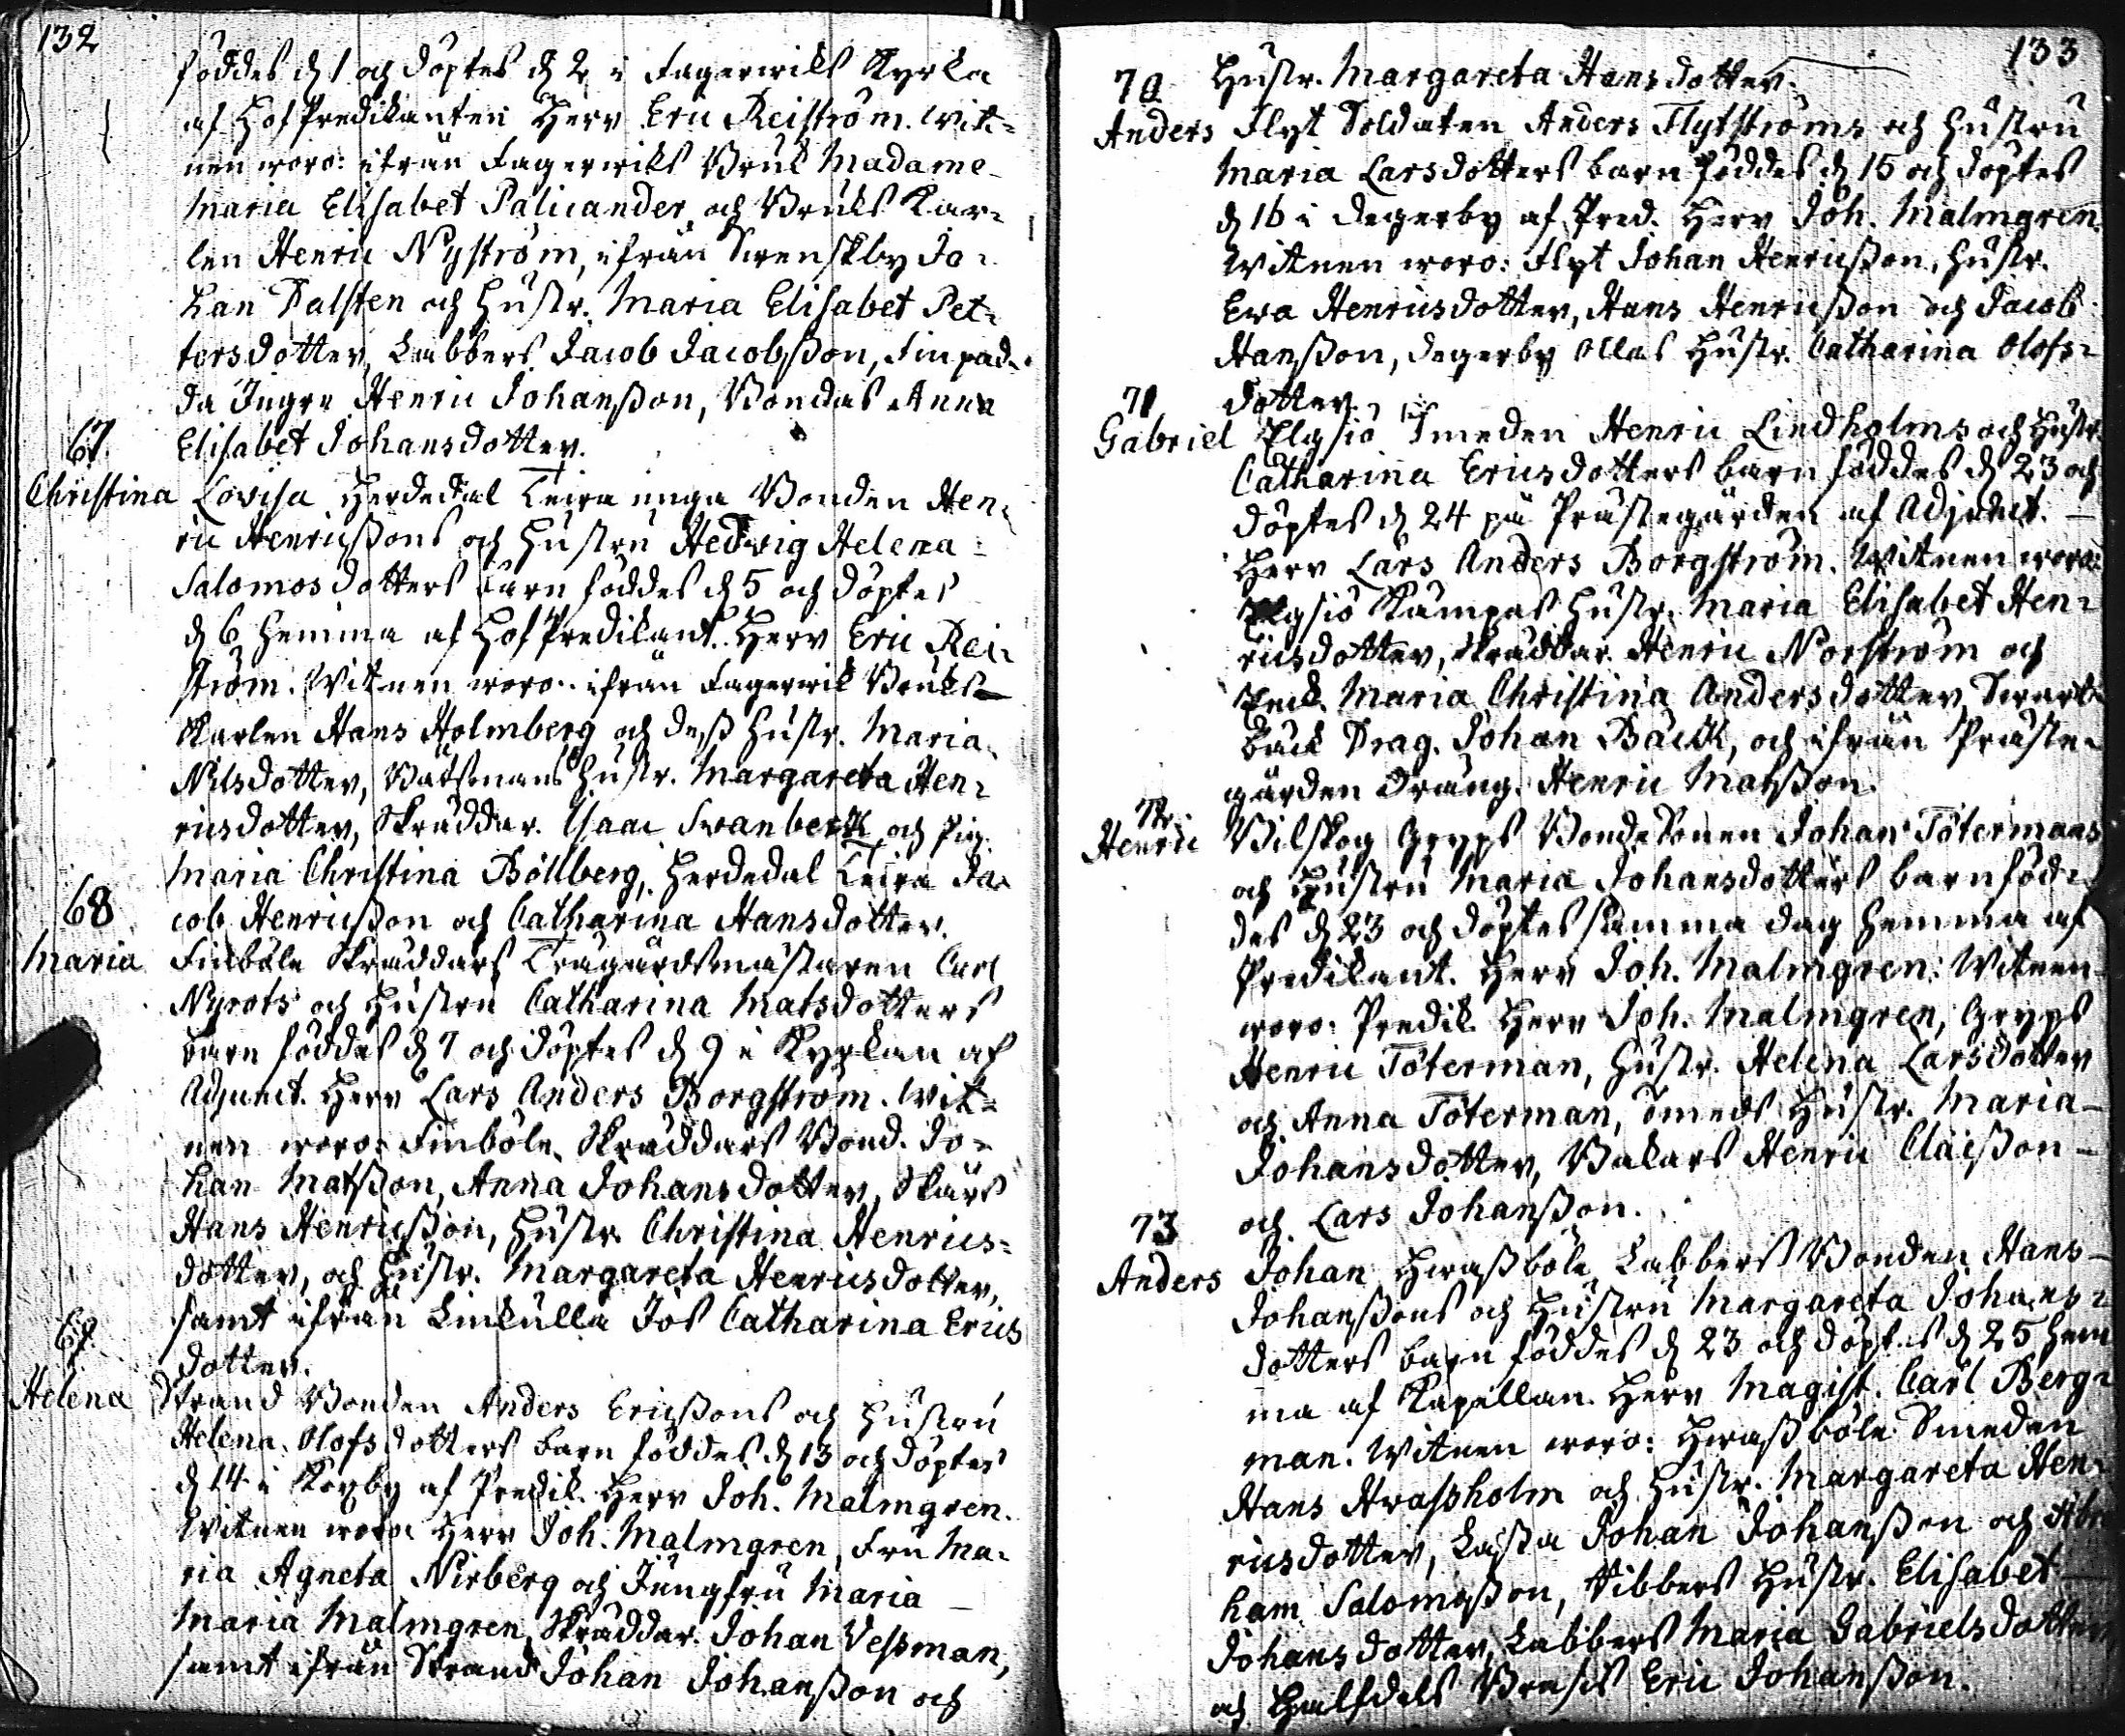 132
föddes d 1 och döptes d 2 i Fagerwiks Kyrka
af Hof Predikanten Herr Eric Reiström. Wit-
nen woro: ifrån Fagerwiks Bruk Madame
Maria Elisabet Palicander, och Bruks Kar-
len Henric Nyström, ifrån Svenskby Jo-
han Dalsten och Hustr. Maria Elisabet Pet-
tersdotter, Labbers Jacob Jacobsson, Finpad-
da Ingre Henric Johansson, Bondas Anna
Elisabet Johansdotter.
67
Christina Lovisa Herdedal Teira unga Bonden Hen-
ric Henricssons och Hustru Hedwig Helena
Salomosdotters barn föddes d 5 och döptes
d 6 hemma af Hof Predikant. Herr Eric Rei-
ström. Witnen woro: ifrån Fagerwik Bruks
Karlen Hans Holmberg och dess Hustr. Maria
Nilsdotter, Båtsmans Hustr. Margareta Hen-
ricsdotter, Skräddar. Isaac Swanberk och Pig.
Maria Christina Böllberg, Herdedal Teira Ja-
cob Henricsson och Catharina Hansdotter.
68
Maria Finböle Skräddars Trägårdsmästaren Carl
Nyrots och Hustru Catharina Matsdotters
barn föddes d 7 och döptes d 9 i Kyrkan af
Adjunct. Herr Lars Anders Borgström. Wit-
nen woro: Finböle Skräddars Bond. Jo-
han Matsson, Anna Johansdotter, Skärs
Hans Henricsson, Hustr. Christina Henrics-
dotter, och Hustr. Margareta Henricsdotter,
samt ifrån Linkulla Jos Catharina Erics
dotter.
69
Helena Strand Bonden Anders Ericssons och Hustru
Helena Olofsdotters barn föddes d 13 och döptes
d 14 i Köpby af Predik. Herr Joh. Malmgren.
Witnen woro: Herr Joh. Malmgren, Fru Ma-
ria Agneta Nirberg och Jungfru Maria
Maria Malmgren, Skräddar. Johan Vessman,
samt ifrån Strand Johan Johansson och
133
Hustr. Margareta Hansdotter.
70
Anders Flyt Soldaten Anders Flytströms och Hustru
Maria Larsdotters barn föddes d 15 och döptes
d 16 i Degerby af Pred. Herr Joh. Malmgren.
Witnen woro: Flyt Johan Henricsson, Hustr.
Ewa Henricsdotter, Hans Henricsson och Jacob
Hansson, Degerby Ollas Hustr. Catharina Olofs-
dotter.
71
Gabriel Elgsiö Smeden Henric Lindholms och Hustr.
Catharina Ericsdotters barn föddes d 23 och
döptes d 24 på Prästegården af Adjunct.
Herr Lars Anders Borgström. Witnen woro:
Elgsiö Kämpas Hustr. Maria Elisabet Hen-
ricsdotter, Skräddar. Henric Norström och
Maria Christina Andersdotter, Swart-
bäck Drag. Johan Bäckk, och ifrån Präste-
gården Dräng. Henric Matsson.
72
Henric Bilskog Gryps Bonde Sonen Johan Tötermans
och Hustru Maria Johansdotters barn föd-
des d 23 och döptes samma dag hemma af
Predikant. Herr Joh. Malmgren: Witnen
woro: Predik. Herr Joh. Malmgren, Gryps
Henric Töterman, Hustr. Helena Larsdotter
och Anna Töterman, Smeds Hustr. Maria
Johansdotter, Bakars Henric Claësson
och Lars Johansson.
73
Anders Johan Hwassböle Labbers Bonden Hans
Johanssons och Hustru Margareta Johans-
dotters barn föddes d 23 och döptes d 25 hem
ma af Kapellan. Herr Magist. Carl Berg-
man. Witnen woro: Hwassböle Smeden
Hans Hwassholm och Hustr. Margareta Hen-
ricsdotter, Lassa Johan Johansson och Abra
ham Salomosson, Vibbers Hustr. Elisabet
Johansdotter, Labbers Maria Gabrielsdotter
och Eric Johansson.